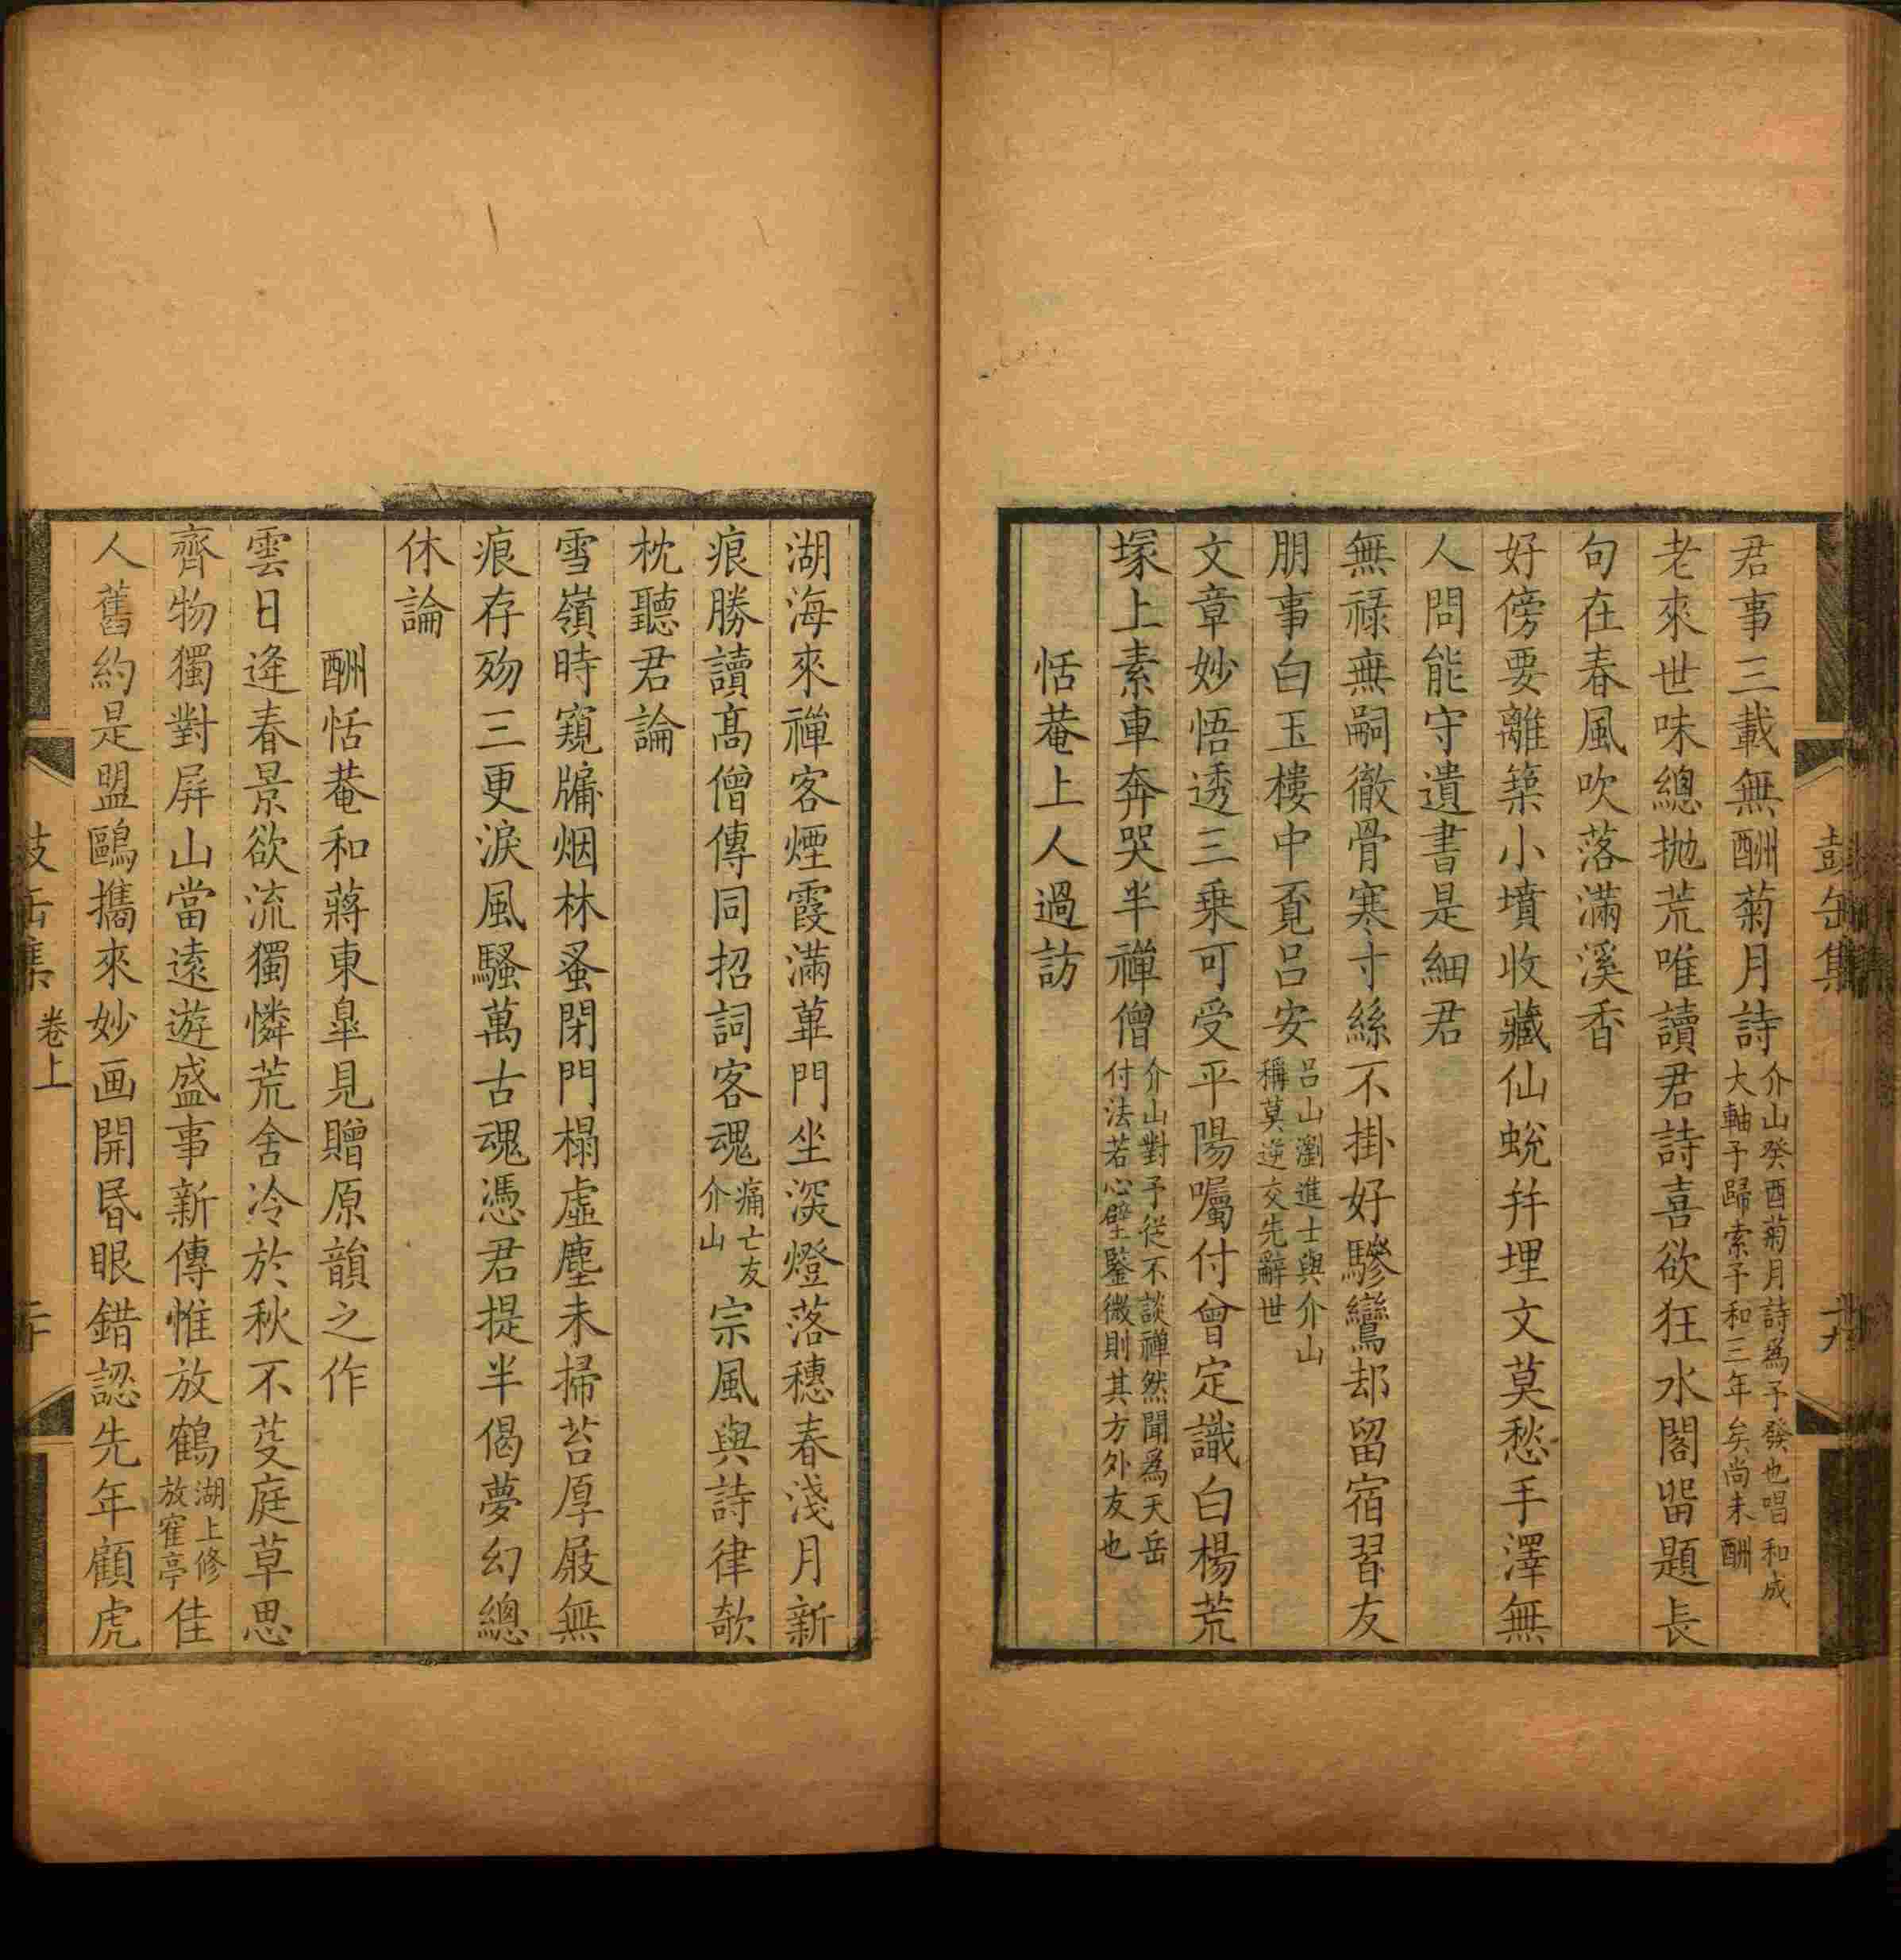 君事三載無酬菊月詩介山癸酉菊月詩為予發也唱和成大軸予歸索予和三年矣尚未酬
老來世味總拋荒唯讀君詩喜欲狂水閣留題長
句在春風吹落滿溪香
好傍要離築小墳收藏仙蛻并埋文莫愁手澤無
人問能守遺書是細君
無祿無嗣徹骨寒寸絲不掛好驂鸞却留宿習友
朋事白玉樓中覓呂安呂山瀏進士與介山稱莫逆交先辭世
文章妙悟透三乗可受平陽囑付曾定識白楊荒
塚上素車奔哭半禪僧介山對予從不談禅然聞為天岳付法若心壁鑒微則其方外友也
恬菴上人過訪
湖海來禪客煙霞滿蓽門坐深燈落穗春淺月新
痕勝讀髙僧傳同招詞客魂痛亡友介山宗風與詩律欹
枕聽君論
雪嶺時窺牖烟林蚤閉門榻虛塵未掃苔厚屐無
痕存歿三更淚風騷萬古魂憑君提半偈夢幻總
休論
酬恬菴和蔣東臯見贈原韻之作
雲日逄春景欲流獨憐荒舍冷於秋不芟庭草思
齊物獨對屏山當遠遊盛事新傳惟放鶴湖上修放隺亭佳
人舊約是盟鷗攜來妙画開昬眼錯認先年顧虎
卷上